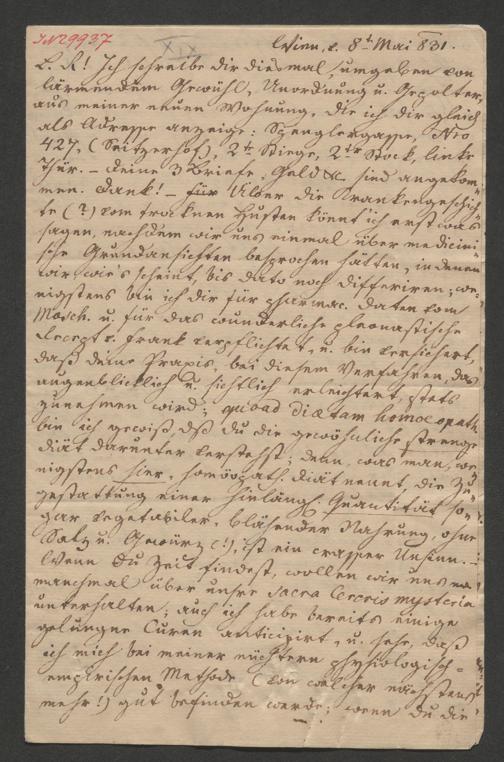 IN 29937
XIX
Wien, d. 8t Mai 831.
L. R! Ich schreibe dir diesmal, umgeben von
lärmendem Gewühl, Unordnung u. Gepolter,
aus meiner neuen Wohnung, die ich dir gleich
als Adresse anzeige: Spenglergasse, Nro
427, (Seitzerhof), 2te Stiege, 2ter Stock, linke
Thür. – Deine 3 Briefe, Geld &c. sind angekom-
men. Dank! – Für über die Krankengeschich-
te (?) vom trocknen Husten könnt ich erst was
sagen, nachdem wir uns einmal über medicini-
sche Grundansichten besprochen hätten, in denen
wir, wie's scheint, bis dato noch differiren; we-
nigstens bin ich dir für pharmac. Daten vom
Mosch. u. für das wunderliche pleonastische
Recept v. Frank verpflichtet, u. bin versichert,
daß deine Praxis, bei diesem Verfahren, das
augenblicklich u. sichtlich erleichtert, stets
zunehmen wird; quoad diaetam homoeopath.
bin ich gewiß, daß du die gewöhnliche strenge
Diät darunter verstehst; denn, was man, we-
nigstens hier, homöopath. Diät nennt, die Zu-
gestattung einer hinlängl. Quantität so-
gar vegetabiler, blähender Nahrung, ohne
Salz u. Gewürz (!), ist ein crasser Unsinn. –
Wenn du Zeit findest, wollen wir uns
manchmal über unsre sacra Cereris mysteria
unterhalten; auch ich habe bereits einige
gelungne Curen anticipirt, u. sehe, daß
ich mich bei meiner nüchtern physiologisch-
empirischen Methode (von welcher nächstens
mehr!) gut befinden werde; wenn du die